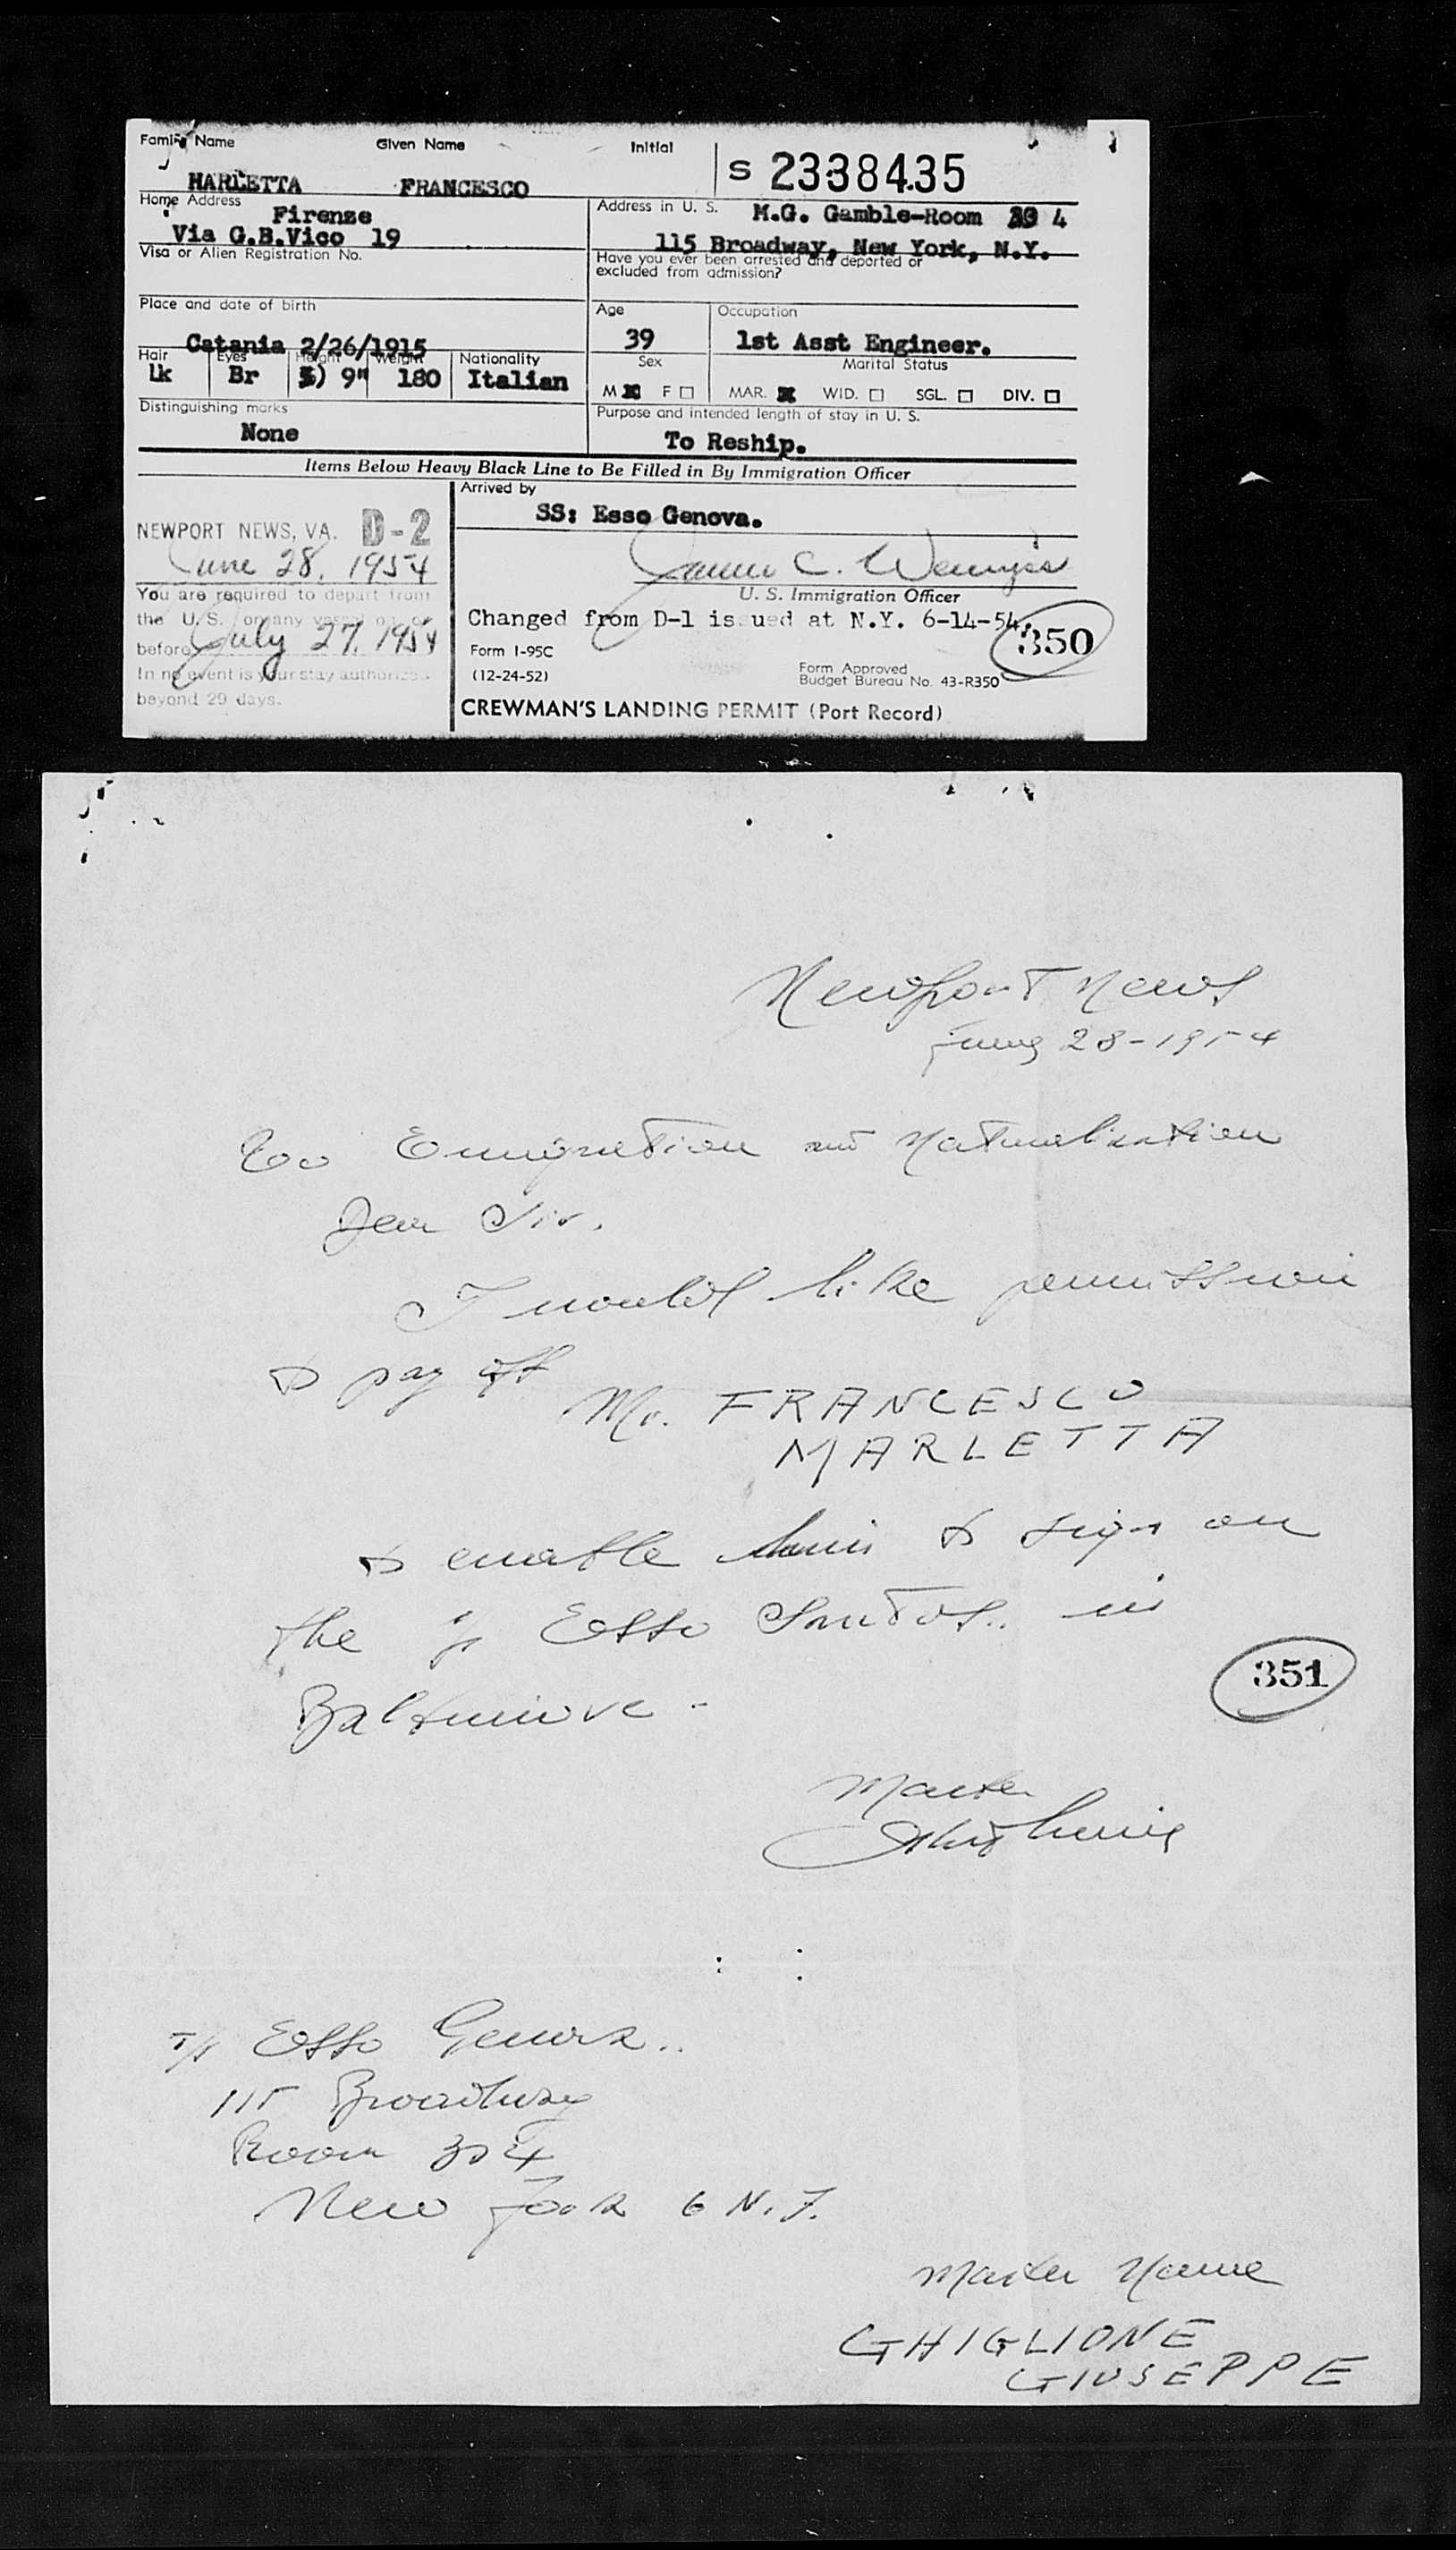 Family Name Given Name Initial
S 2338435
MARLETTA FRANCESCO
Home Address Firenze
Via G.B.Vico 19
Address in U. S. M.G. Gamble-Room 4
115 Broadway, New York, N.Y.
Visa or Alien Registration No.
Have you ever been arrested and deported or
excluded from admission?
Place and date of birth
Catania 2/26/1915
Age
39
Occupation
1st Asst Engineer.
Hair Eyes Height Weight Nationality
Br 9" 180 Italian
Sex
M F
Marital Status
MAR. WID. SGL. DIV.
Distinguishing marks
None
Purpose and intended length of stay in U. S.
To Reship.
Items Below Heavy Black Line to Be Filled in By Immigration Officer
Arrived by
SS: Esso Genova.
NEWPORT NEWS, VA. D-2
June 28, 1954
You are required to depart from
the U. S. on any vessel on or
before July 27, 1954
In no event is your stay authorized
beyond 29 days.
James C.
U. S. Immigration Officer
Changed from D-1 issued at N.Y. 6-14-54
350
Form I-95C
(12-24-52)
Form Approved
Budget Bureau No. 43-R350
CREWMAN'S LANDING PERMIT (Port Record)
Newport News
28-1954
Emigration and Naturalization
Dear Sir.
I would like permission
to pay off
Mr. FRANCESCO
MARLETTA
to enable him to sign on
the Esso Santos.. in
Baltimore -
351
Master
T/s Esso Genova..
115 Broadway
Room 304
New York 6 N.Y.
Master Name
GHIGLIONE
GIUSEPPE